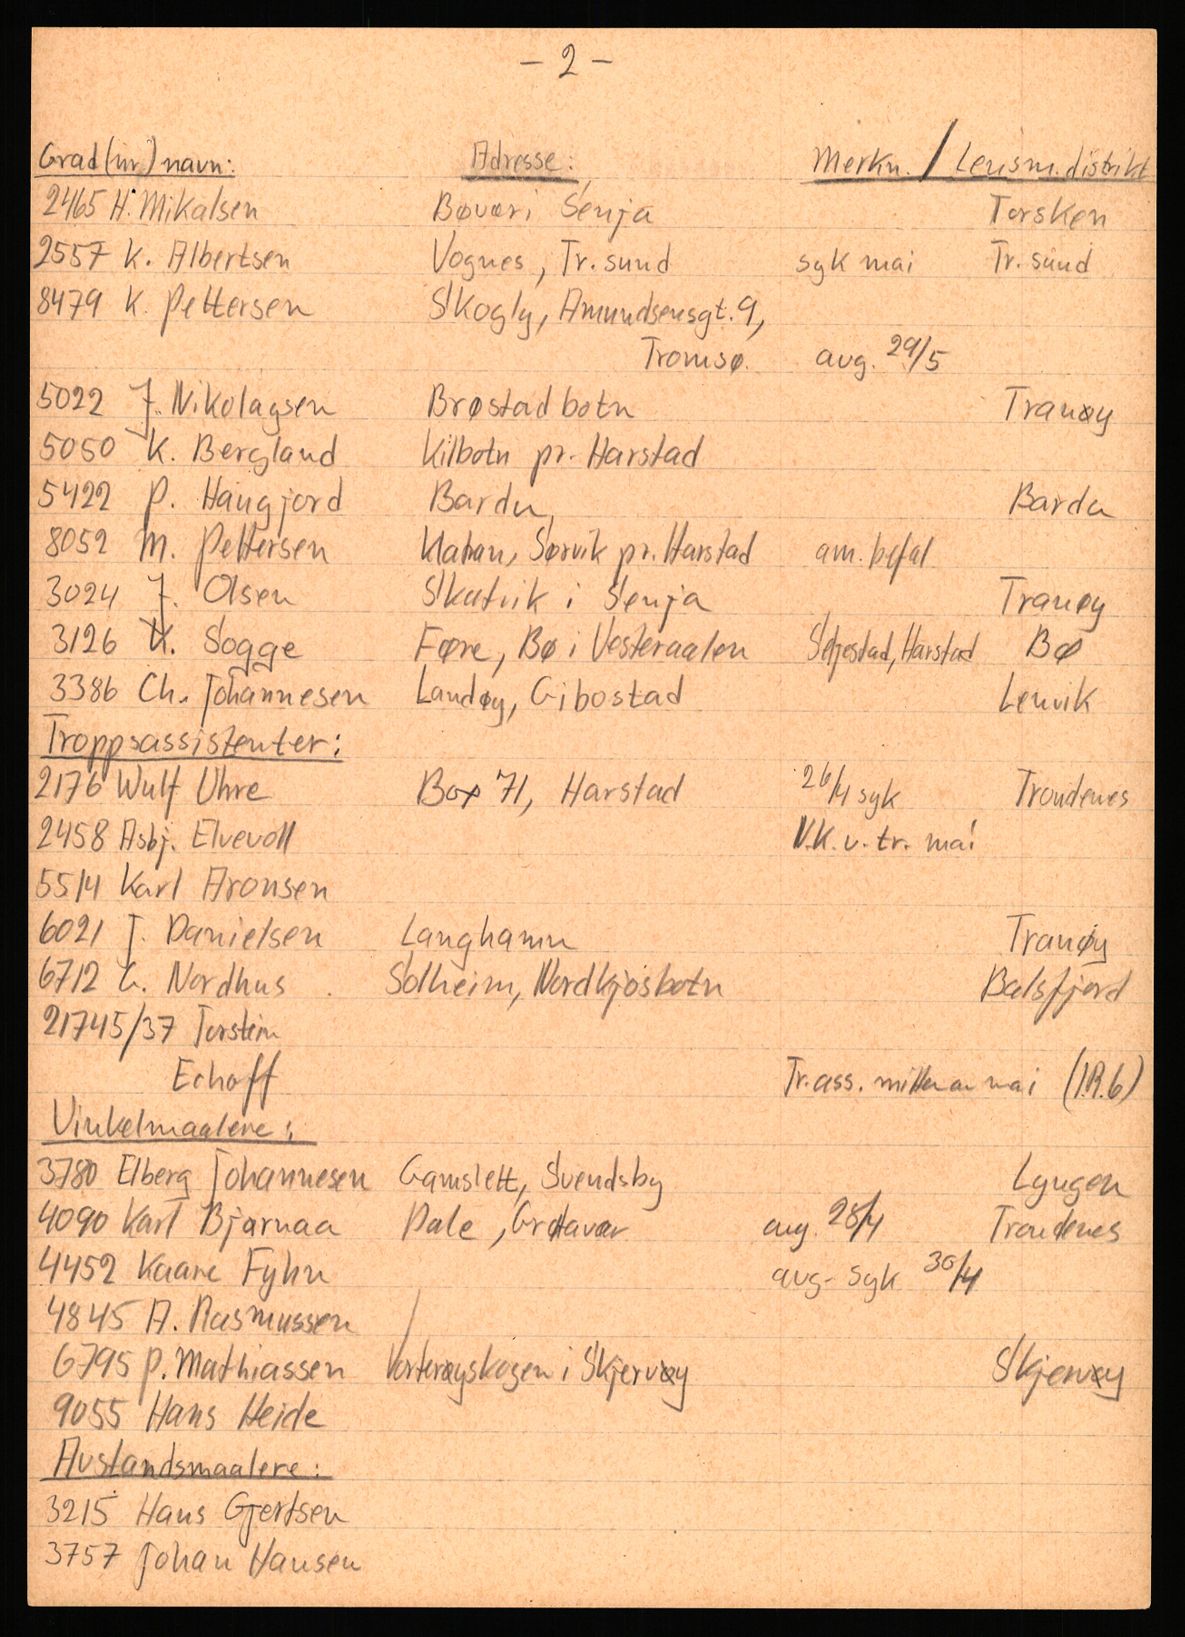 - 2 -
Grad (nr.) navn: Adresse: Merkn. / Lensm. distrikt
2465 H. Mikalsen Bøvær i Senja Torsken
2557 K. Albertsen Vognes, Tr. sund syk mai Tr. sund
8479 K. Pettersen Skogly, Amundsensgt. 9,
Tromsø. avg. 29/5
5022 J. Nikolaysen Brøstadbotn Tranøy
5050 K. Bergland Kilbotn pr. Harstad
5422 P. Haugjord Bardu Bardu
8052 M. Pettersen Sørvik pr. Harstad am. befal
3024 J. Olsen Skatvik i Senja Tranøy
3126 K. Sogge Føre, Bø i Vesteraalen Harstad Bø
3386 Ch. Johannesen Landøy, Gibostad Lenvik
Troppsassistenter:
2176 Wulf Uhre Box 71, Harstad 26/4 syk Trondenes
2458 Asbj. Elvevoll V.K. v. tr. mai
5514 Karl Aronsen
6021 J. Danielsen Langhamn Tranøy
6712 G. Nordhus Solheim, Nordkjosbotn Balsfjord
21745/37 Torstein
Echoff Tr. ass. mitten av mai (I.R.6)
Vinkelmaalere:
3780 Elberg Johannesen Gamslett, Svendsby Lyngen
4090 Karl Bjarnaa Dale, Grøtavær avg. 28/4 Trondenes
4452 Kaare Fyhn avg. syk 30/4
4845 A. Rasmussen
6795 P. Mathiassen Vorterøyskogen i Skjervøy Skjervøy
9055 Hans Heide
Avstandsmaalere:
3215 Hans Gjertsen
3757 Johan Hansen